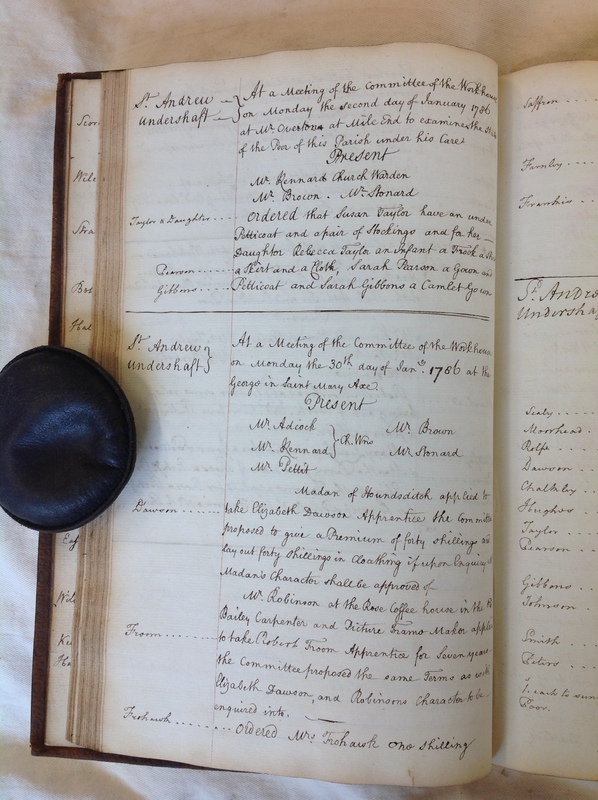 St. Andrew
Undershaft
At a Meeting of the Committee of the Workhouse
on Monday the second day of January 1786
at Mr. Overtons at Mile End to examine the
of the Poor of this Parish under his Care
Present
Mr. Kennard Church Warden
Mr. Brown . Mr. Stonard
Taylor & Daughter .... Ordered that Susan Taylor have an under
Petticoat and a pair of Stockings and for her
Daughter Rebecca Taylor an Infant a Frock a
Pearson ........ a Skirt and a Cloth, Sarah Pearson a Gown and
Gibbons ....... Petticoat and Sarah Gibbons a Camlet Gown
St. Andrew
Undershaft
At a Meeting of the Committee of the Workhouse
on Monday the 30th day of Jany. 1786 at the
George in Saint Mary Axe
Present
Mr. Adcock
Mr. Kennard } Ch. Wns
Mr. Pettit
Mr. Brown
Mr. Stonard
Madan of Houndsditch applied to
Dawson ........ take Elizabeth Dawson Apprentice the Committee
proposed to give a Premium of forty shillings and
lay out forty shillings in Cloathing if upon Enquiry
Madan's Charactor shall be approved of
Mr. Robinson at the Rose Coffee house in the
Bailey Carpenter and Picture Frame Maker
Froom ......... to take Robert Froom Apprentice for Seven years
the Committee proposed the same Terms as with
Elizabeth Dawson, and Robinsons Character to be
enquired into.
Frohawk ....... Ordered Mrs. Frohawk one shilling
Saffron ...
Farnley ....
Franklin ...
St. Andre
Undersha
Sealy ....
Moorhead .
Rolfe ...
Dawson ...
Chalkley ..
Hughes ...
Taylor ...
Pearson ...
Gibbons ...
Johnson ..
Smith ....
Peters ...